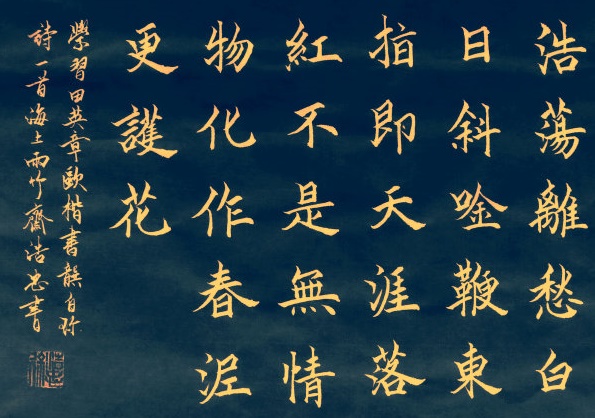 浩蕩離愁白
日斜唫鞭東
指即天涯落
紅不是無情
物化作春泥
更護花
學習田英章歐楷書龔自珍
詩一首海上雨竹齋浩忠書